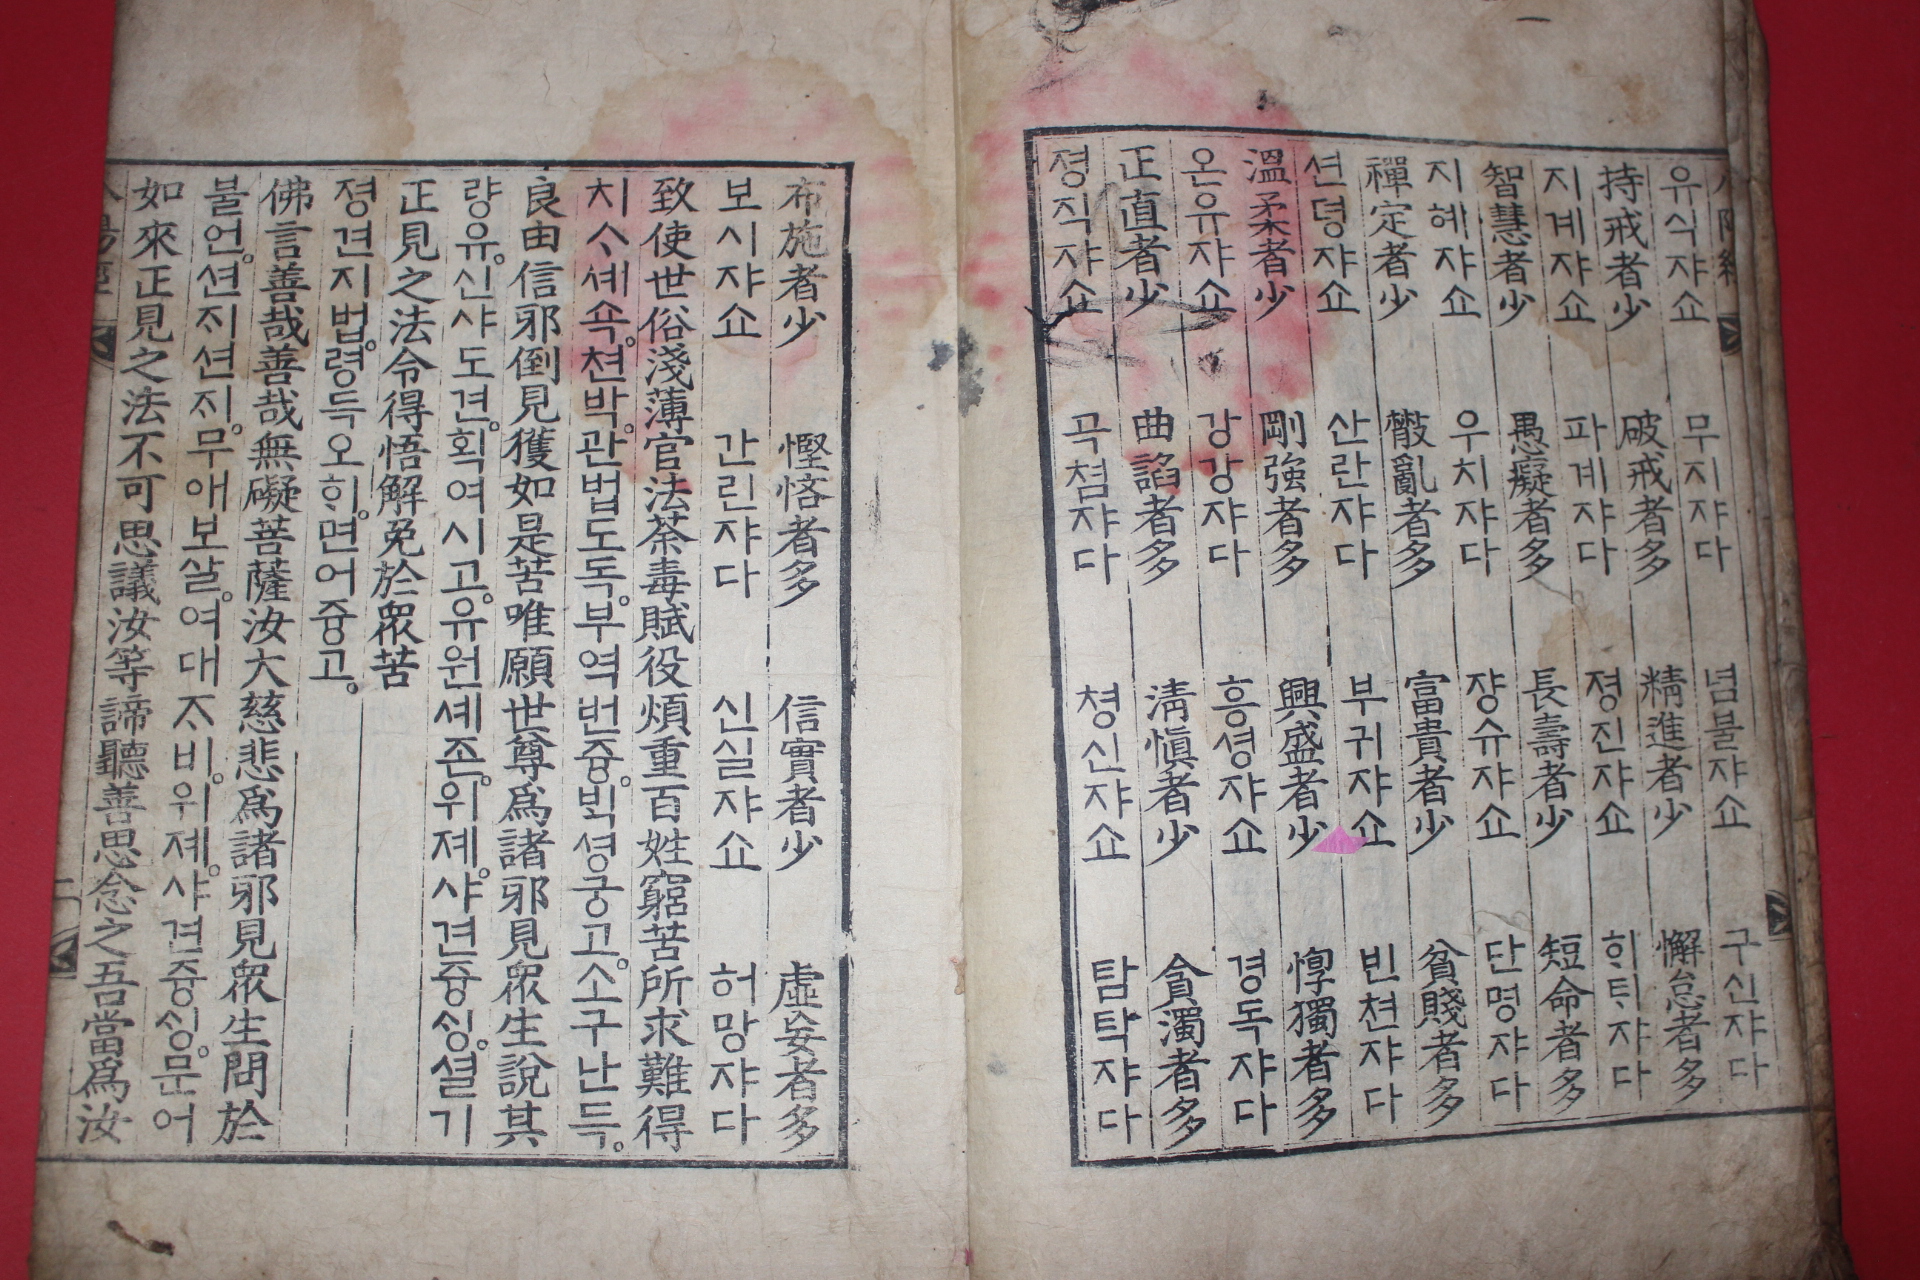 유식쟈쇼 무지쟈다 념불쟈쇼 구신쟈다
持戒者少 破戒者多 精進者少 懈怠者多
지계쟈쇼 파계쟈다 졍진쟈쇼 ᄒᆡᄐᆡ쟈다
智慧者少 愚癡者多 長壽者少 短命者多
지혜쟈쇼 우치쟈다 쟝슈쟈쇼 단명쟈다
禪定者少 散亂者多 富貴者少 貧賤者多
션뎡쟈쇼 산란쟈다 부귀쟈쇼 빈쳔쟈다
溫柔者少 剛強者多 興盛者少 惸獨者多
온유쟈쇼 강강쟈다 흥셩쟈쇼 경독쟈다
正直者少 曲諂者多 淸愼者少 貪濁者多
졍직쟈쇼 곡쳠쟈다 쳥신쟈쇼 탐탁쟈다
布施者少 慳悋者多 信實者少 虛妄者多
보시쟈쇼 간린쟈다 신실쟈쇼 허망쟈다
致使世俗淺薄官法荼毒賦役煩重百姓窮苦所求難得
치ᄉᆞ셰쇽。쳔박。관법도독。부역번즁。ᄇᆡᆨ셩궁고。소구난득。
良由信邪倒見獲如是苦唯願世尊爲諸邪見衆生說其
량유。신샤도견。획여시고。유원셰존。위졔。샤견즁ᄉᆡᆼ。셜기
正見之法令得悟解免於衆苦
졍견지법。령득오ᄒᆡ。면어즁고。
佛言善哉善哉無礙菩薩汝大慈悲爲諸邪見衆生問於
불언。션ᄌᆡ션ᄌᆡ。무애보살。여대ᄌᆞ비。위졔。샤견즁ᄉᆡᆼ。문어
如來正見之法不可思議汝等諦聽善思念之吾當爲汝